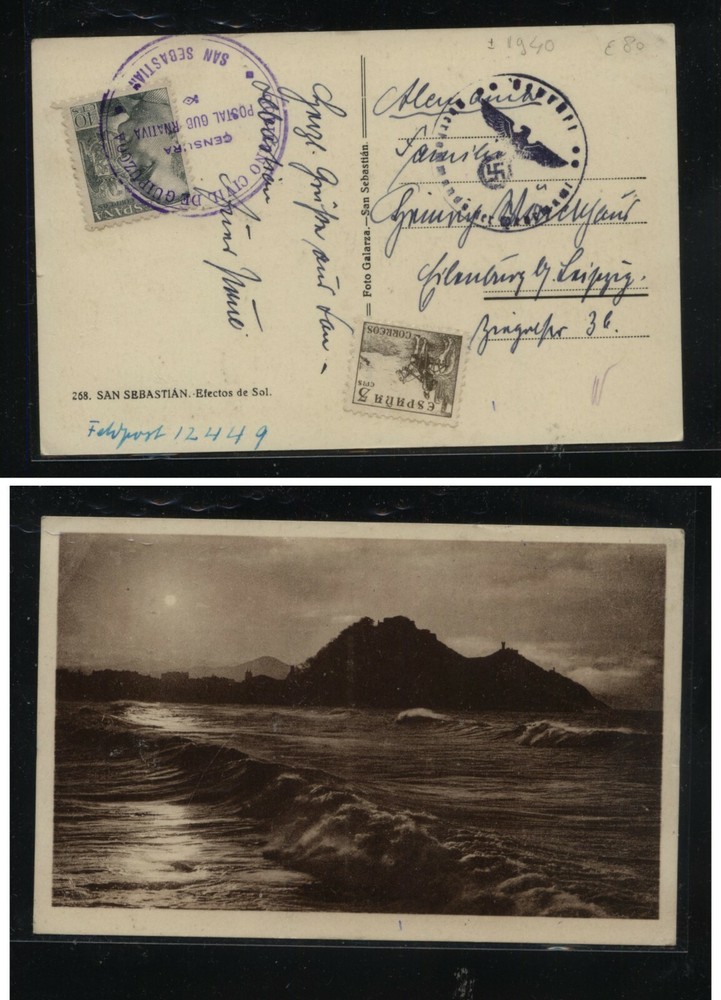 ± 1940
£ 80
SAN SEBASTIAN
CENSURA
POSTAL GUBERNATIVA
CIVIL DE GUIPUZCOA
40
ESPAÑA
Herzl. Grüße aus San-
Sebastian
Foto Galarza.—San Sebastián.
Alemania
Familie
Geprüft
Oberkommando der Wehrmacht
Eilenburg b/ Leipzig.
36.
CORREOS
5 CTS
ESPAÑA
268. SAN SEBASTIÁN.-Efectos de Sol.
Feldpost 12449